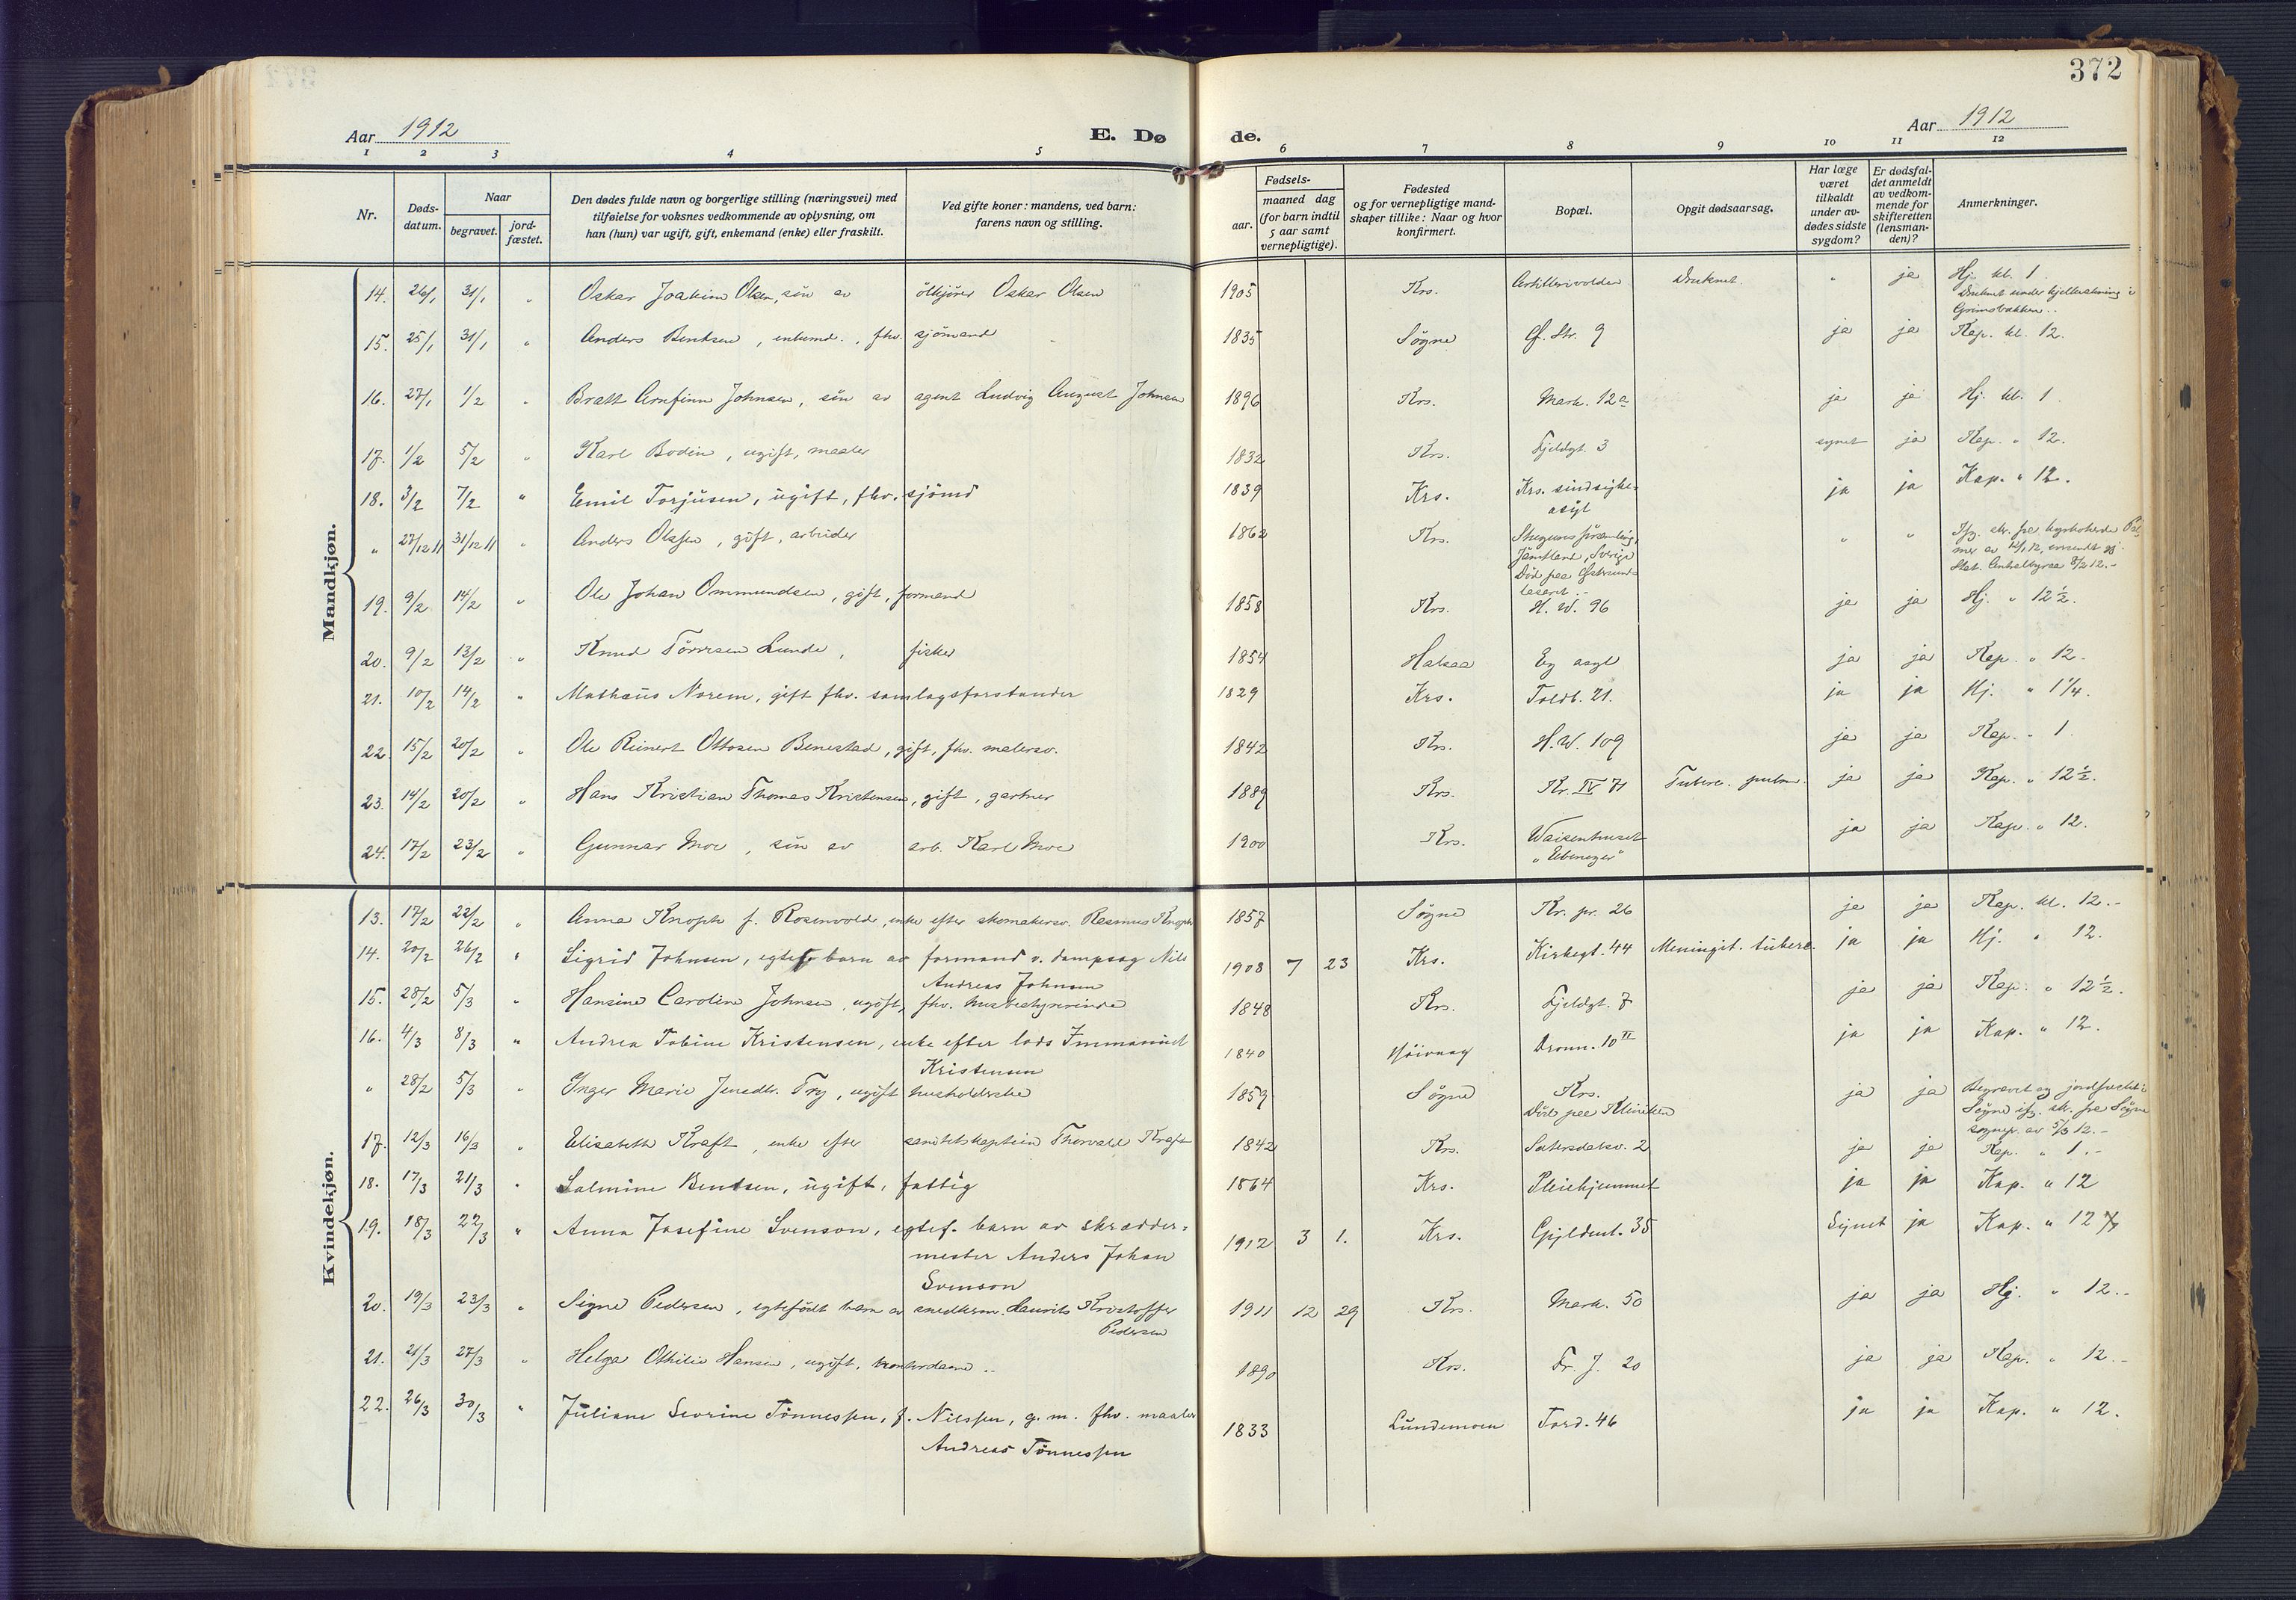 372
Aar 1912 E. Dø de. Aar 1912
1 2 3 4 5 6 7 8 9 10 11 12
Nr. Døds-datum. Naar begravet. jord-fæstet. Den dødes fulde navn og borgerlige stilling (næringsvei) med tilføielse for voksnes vedkommende av oplysning, om han (hun) var ugift, gift, enkemand (enke) eller fraskilt. Ved gifte koner: mandens, ved barn: farens navn og stilling. Fødsels- aar. maaned dag (for barn indtil 5 aar samt vernepligtige). Fødested og for vernepligtige mand-skaper tillike: Naar og hvor konfirmert. Bopæl. Opgit dødsaarsag. Har læge været tilkaldt under av-dødes sidste sygdom? Er dødsfal-det anmeldt av vedkom-mende for skifteretten (lensman-den)? Anmerkninger.
Mandkjøn.
14. 26/1 31/1 " Oskar Joakim Olsen, sön av ölkjører Oskar Olsen 1905 Krs. Artillerivolden Druknet. " ja Hj. kl. 1.
Druknet under kjelkeakning i
Grimsbækken..
15. 25/1 31/1 " Anders Bentsen, enkemd., fhv. sjömand 1835 Søgne Ø. Str. 9 ja ja Kap. kl. 12.
16. 27/1 1/2 " Bratt Arnfinn Johnsen, sön av agent Ludvig August Johnsen 1896 Krs. Mark. 12a ja ja Hj. kl. 1
17. 1/2 5/2 " Karl Bodin, ugift, maaler 1832 Krs. Fjeldgt. 3 synet ja Kap. " 12.
18. 3/2 7/2 " Emil Torjusen, ugift, fhv. sjömd 1839 Krs. Krs. sindsyge-
asyl ja ja Kap. " 12.
" 27/12 11 31/12 11 " Anders Olsen, gift, arbeider 1862 Krs. Stuguns församling,
Jämtland, Sverige
Död paa Østersunds
lasaret.- " " Ifg. skr. fra kyrkoherde Pal-
mer av 12/1 12, innsendt gj.
Stat. Centralbyraa 8/2 12.-
19. 9/2 14/2 " Ole Johan Ommundsen, gift, formand 1858 Krs. H. W. 96 ja ja Hj. " 12½.
20. 9/2 13/2 " Knud Törresen Lunde, fisker 1854 Halsaa Eg asyl ja ja Kap. " 12.
21. 10/2 14/2 " Mathæus Norem, gift fhv. samlagsforstander 1829 Krs. Toldb. 21. ja ja Hj. " 1¼.
22. 15/2 20/2 " Ole Reinert Ottosen Benestad, gift, fhv. malersv. 1842 Krs. H. W. 109 ja ja Kap. " 1
23. 14/2 20/2 " Hans Kristian Thomas Kristensen, gift, gartner 1889 Krs. Kr. IV 71 Tuberc. pulm. ja ja Kap. " 12½.
24. 17/2 23/2 " Gunnar Moe, sön av arb. Karl Moe 1900 Krs. Waisenhuset
"Ebenezer" ja ja Kap. " 12.
Kvindekjøn.
13. 17/2 22/2 " Anna Knoph f. Rosenvolde, enke efter skomakersv. Rasmus Knoph 1857 Søgne Kr. pr. 26 ja ja Kap. kl. 12.-
14. 20/2 26/2 " Sigrid Johnsen, egtef. barn av formand v. dampsag Nils
Andreas Johnsen 1908 7 23 Krs. Kirkegt. 44 Meningit. tuberc. ja ja Hj. " 12.
15. 28/2 5/3 " Hansine Caroline Johnsen, ugift, fhv. husbestyrerinde 1848 Krs. Fjeldgt. 7 ja ja Kap. " 12½.
16. 4/3 8/3 " Andrea Tobine Kristensen, enke efter lods Immanuel
Kristensen 1840 Höivaag Dronn. 10 II ja ja Kap. " 12.
" 28/2 5/3 " Inger Marie Jensdtr. Try, ugift husholderske 1859 Søgne Krs.
Död paa Kliniken ja ja Begravet og jordfæstet i
Søgne ifg. skr. fra Søgne
sognepr. av 5/3 12.-
17. 12/3 16/3 " Elisabeth Kraft, enke efter sanitetskaptein Thorvald Kraft 1842 Krs. Sætersdalsv. 2 ja ja Kap. " 1.-
18. 17/3 21/3 " Salmine Bentsen, ugift, fattig 1864 Krs. Pleiehjemmet ja ja Kap. " 12
19. 18/3 22/3 " Anna Josefine Svenson, egtef. barn av skrædder-
mester Anders Johan
Svenson 1912 3 1. Krs. Gyldenl. 35 Synet ja Kap. " 12
20. 19/3 23/3 " Signe Pedersen, egtefödt barn av snedkerm. Laurits Kristoffer
Pedersen 1911 12 29 Krs. Mark. 50 ja ja Hj. " 12.-
21. 21/3 27/3 " Helga Othilie Hansen, ugift, kontordame.. 1890 Krs. Fr. J. 20 ja ja Kap. " 12.-
22. 26/3 30/3 " Juliane Sevrine Tönnessen, f. Nilssen, g. m. fhv. maaler
Andreas Tönnessen 1833 Lundemoen Tord. 46 ja ja Kap. " 12.